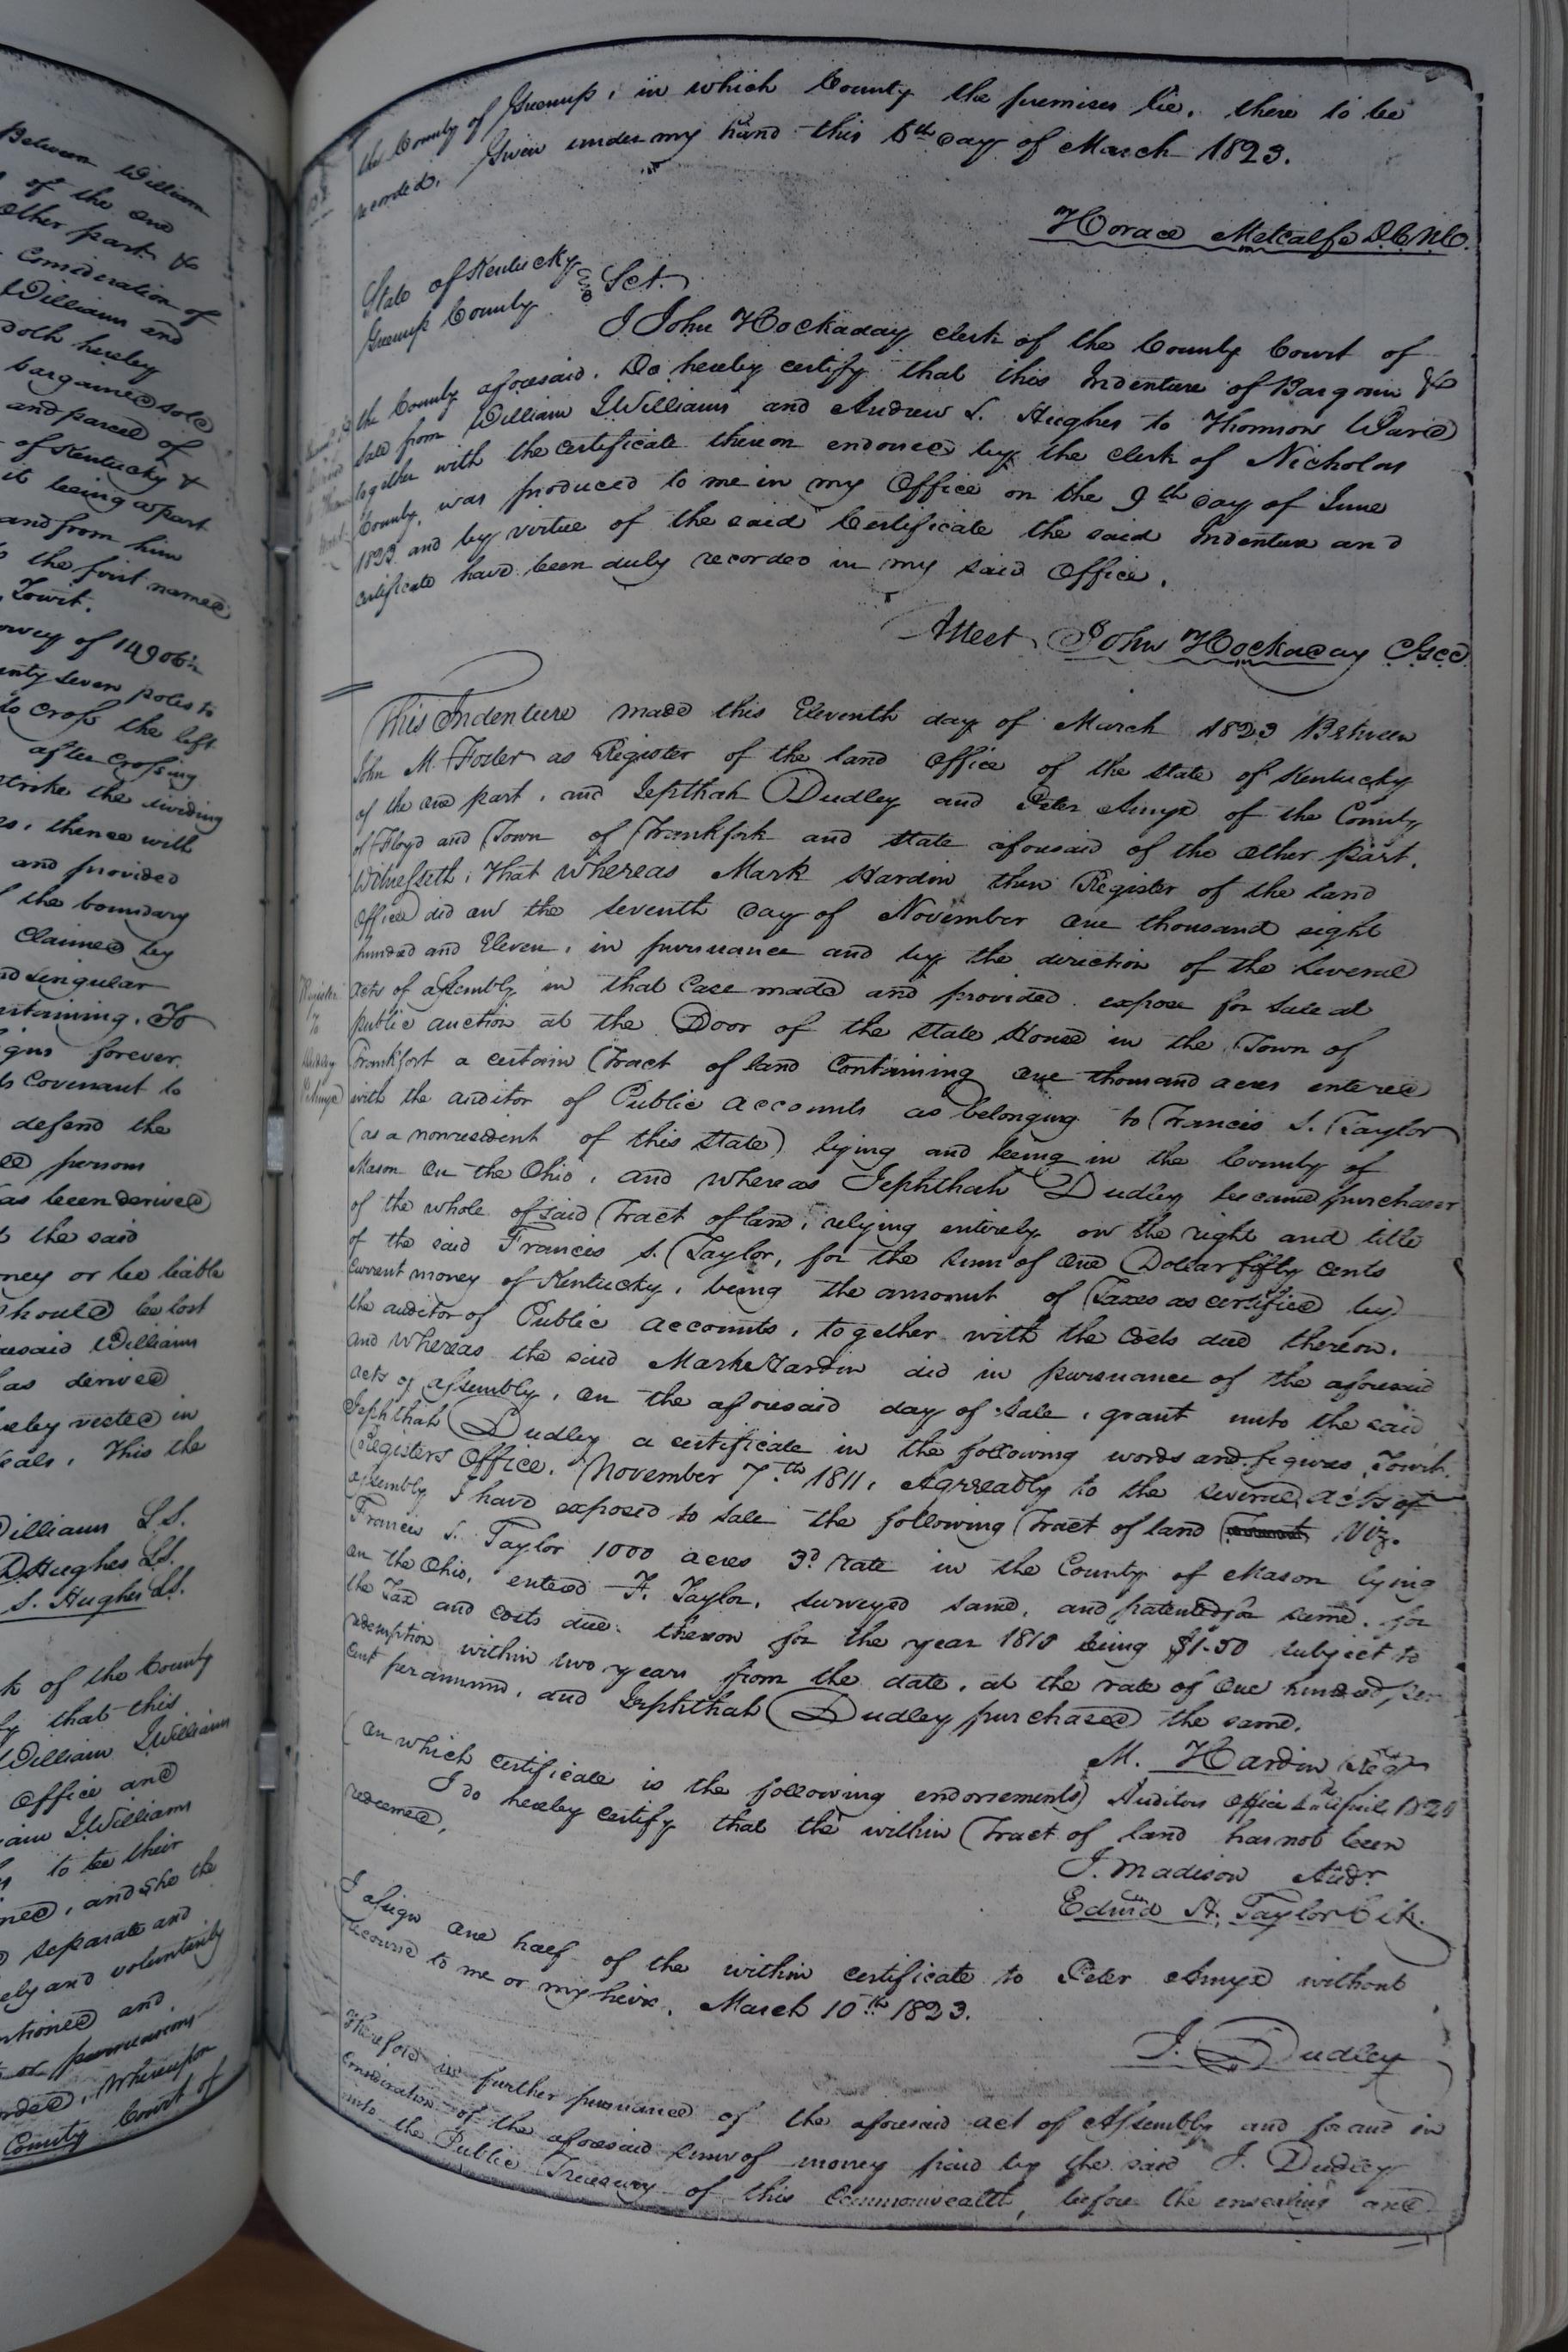 Between William
of the one
other part. &
Consideration of
Williams and
doth hereby
bargained sold
and parcel of
of Kentucky &
it being a part
and from him
the first named
Towit.
of 1490 6
seven poles to
to cross the left
after crossing
strike the
thence with
and provided
the boundary
claimed by
singular
To
forever.
covenant to
defend the
persons
as been derived
the said
or be liable
should be lost
William
as derived
vested in
This the
Williams L.S.
D. Hughes L.S.
S. Hughes L.S.
of the County
that this
William I Williams
office and
I Williams
to be their
and she the
separate and
and voluntarily
and
or persuasions
Whereupon
County Court of
the County of Greenup, in which County the premises lie, there to be
recorded. Given under my hand this 5th day of March 1823.
Horace Metcalfe D.C.N.C.
State of Kentucky
Greenup County Sct.
I John Hockaday clerk of the County Court of
the County aforesaid. Do hereby certify that this Indenture of Bargain &
sale from William I Williams and Andrew S. Hughes to Thomson Ward
together with the certificate thereon endorsed by the clerk of Nicholas
County, was produced to me in my Office on the 9th day of June
1823 and by virtue of the said Certificate the said Indenture and
certificate have been duly recorded in my said Office.
Attest John Hockaday
This Indenture made this Eleventh day of March 1823 Between
John M. Foster as Register of the land Office of the State of Kentucky
of the one part, and Jepthah Dudley and Peter Amyx of the County
of Floyd and Town of Frankfort and State aforesaid of the other part.
Witnesseth, That whereas Mark Hardin then Register of the land
office did on the seventh day of November one thousand eight
hundred and Eleven, in pursuance and by the direction of the several
acts of assembly in that case made and provided expose for sale at
public auction at the Door of the State House in the Town of
Frankfort a certain Tract of land containing one thousand acres entered
with the auditor of Public accounts as belonging to Francis S. Taylor
(as a nonresident of this State) lying and being in the County of
Mason on the Ohio, and whereas Jephthah Dudley became purchaser
of the whole of said Tract of land, relying entirely on the right and title
of the said Francis S. Taylor, for the sum of one Dollar fifty cents
current money of Kentucky, being the amount of Taxes as certified by
the auditor of Public accounts, together with the costs due thereon.
and whereas the said Mark Hardin did in pursuance of the aforesaid
acts of assembly, on the aforesaid day of sale, grant unto the said
Jephthah Dudley a certificate in the following words and figures, Towit.
Registers Office. November 7th 1811, Agreeably to the several acts of
assembly I have exposed to sale the following Tract of land Viz.
Francis S. Taylor 1000 acres 3d rate in the County of Mason lying
on the Ohio, entered F. Taylor, surveyed same, and patented for same. for
the Tax and costs due thereon for the year 1810 being $1.50 subject to
redemption within two years from the date, at the rate of one hundred per
cent per annum, and Jephthah Dudley purchased the same.
M. Hardin Regr
(on which certificate is the following endorsements) Auditors Office April
I do hereby certify that the within Tract of land has not been
redeemed.
J. Madison Audr
Edmd H. Taylor Clk.
I assign one half of the within certificate to Peter Amyx without
recourse to me or my heirs. March 10th 1823.
J. Dudley
Therefore in further pursuance of the aforesaid act of Assembly and for and in
consideration of the aforesaid sum of money paid by the said J. Dudley
into the Public Treasury of this Commonwealth, before the ensealing and